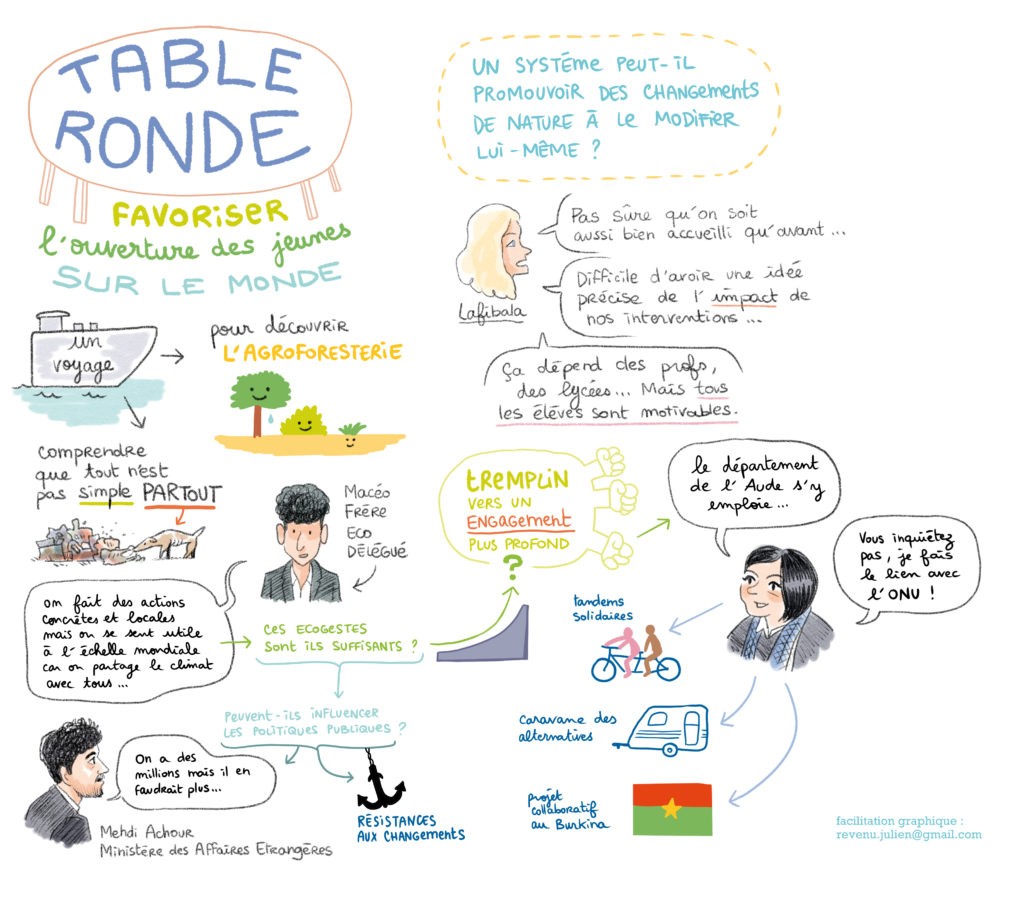 TABLE
RONDE
FAVORISER
l'ouverture des jeunes
SUR LE MONDE
un
voyage
pour découvrir
L'AGROFORESTERIE
comprendre
que tout n'est
pas simple PARTOUT
Macéo
Frère
Eco
Délégué
on fait des actions
concrètes et locales
mais on se sent utile
à l'échelle mondiale
car on partage le climat
avec tous...
Ces ecogestes
sont ils suffisants ?
Peuvent-ils influencer
les politiques publiques ?
On a des
millions mais il en
faudrait plus...
Mehdi Achour
Ministère des Affaires Etrangères
RÉSISTANCES
AUX CHANGEMENTS
UN SYSTÉME PEUT-IL
PROMOUVOIR DES CHANGEMENTS
DE NATURE À LE MODIFIER
LUI-MÊME ?
Pas sûre qu'on soit
aussi bien accueilli qu'avant...
Difficile d'avoir une idée
précise de l'impact de
nos interventions...
Lafibala
Ça dépend des profs,
des lycées... Mais tous
les élèves sont motivables.
tremplin
vers un
ENGAGEMENT
plus profond
?
le département
de l'Aude s'y
emploie...
Vous inquiétez
pas, je fais
le lien avec
l'ONU !
tandems
solidaires
caravane des
alternatives
projet
collaboratif
au Burkina
facilitation graphique :
revenu.julien@gmail.com